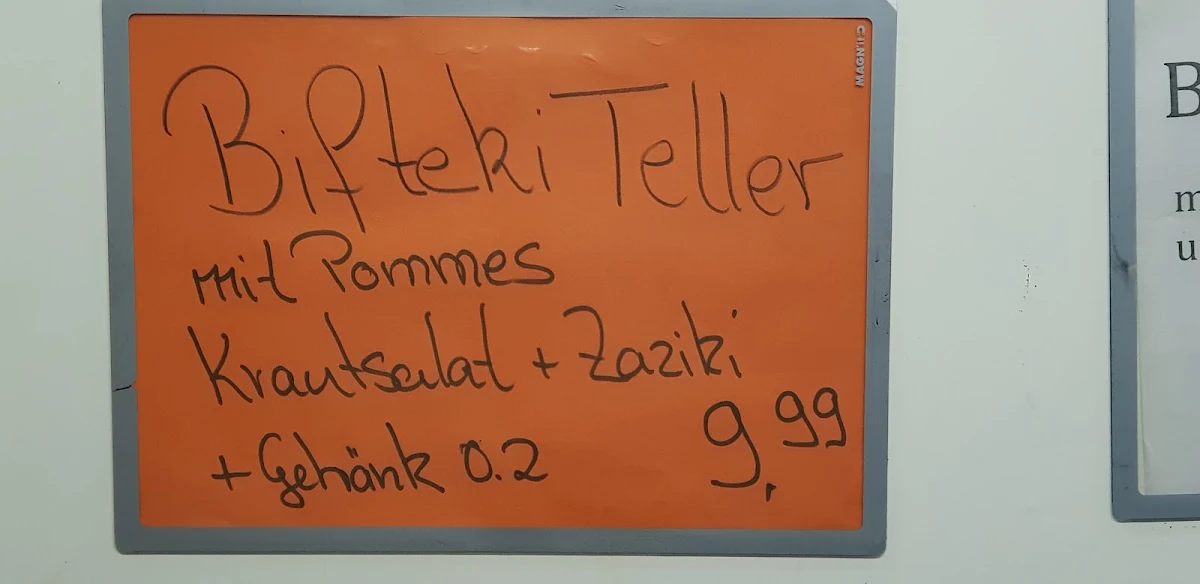 Bifteki Teller
mit Pommes
Krautsalat + Zaziki
+ Getränk 0.2
9,99
MAGNETO
B
m
u